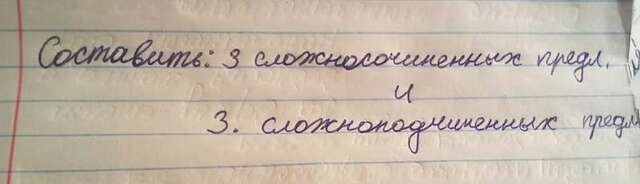 Составить: 3 сложносочиненных предл.
и
3. сложноподчиненных предл